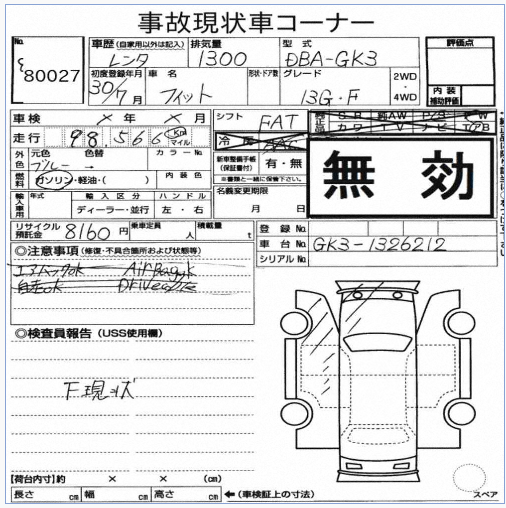 事故現状車コーナー
No.
80027
車歴(自家用以外は記入) 排気量 型式 評価点
レンタ 1300 DBA-GK3
初度登録年月 車名 形状・ドア数 グレード 2WD・4WD
30/7月 フィット 13G・F
内装補助評価
車検 ×年×月 シフト FAT
走行 98,566 Km マイル 冷房 AAC
外色 元色 色替 カラーNo. 新車整備手帳(保証書付) 有・無
ブルー → ※書類と一緒に保管下さい。
燃料 ガソリン・軽油・( ) 内装色
無効
名義変更期限
月 日
輸入車用 年式 輸入区分 ハンドル
ディーラー・並行 左・右
リサイクル預託金 8160円 乗車定員 人 積載量 t
登録No.
車台No. GK3-1326212
シリアルNo.
◎注意事項(修復・不具合箇所および状態等)
エアバックok Airbagok
自走ok Driveable
◎検査員報告(USS使用欄)
下現状
【荷台内寸】約 × × (cm)
長さ cm 幅 cm 高さ cm ←(車検証上の寸法)
スペア